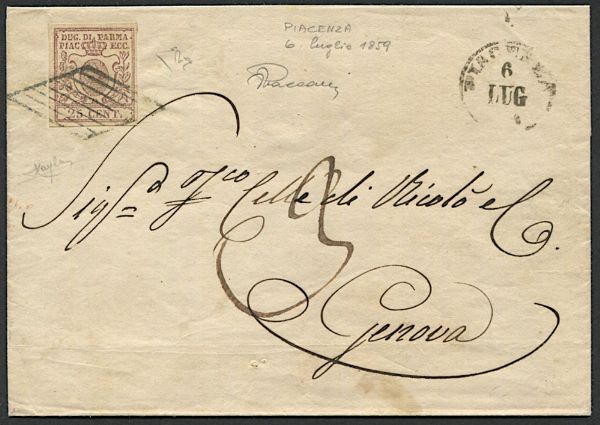 DUC. DI PARMA
PIAC. ECC.
25 CENT.
PIACENZA
6. luglio 1859
PIACENZA
6
LUG
Sig.
Celle di Nicolò e C.
3
Genova